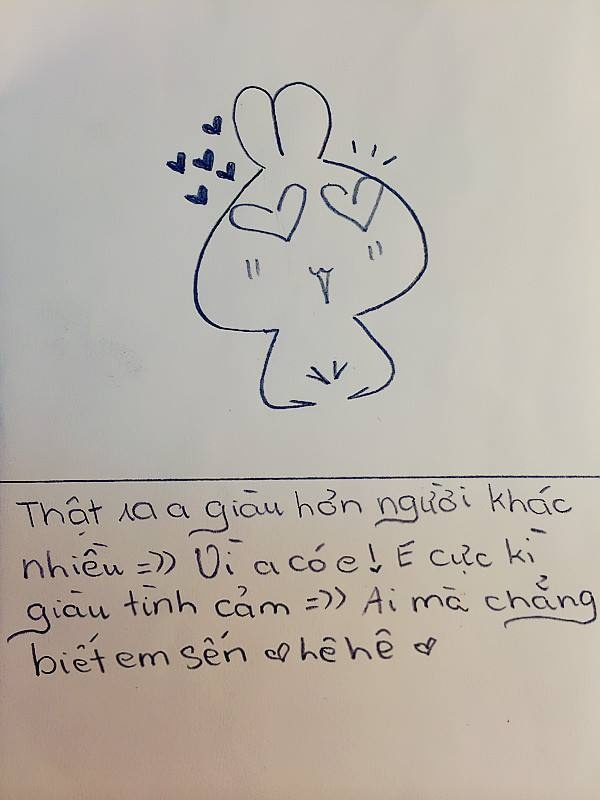 Thật ra a giàu hơn người khác
nhiều =>> Vì a có e! E cực kì
giàu tình cảm =>> Ai mà chẳng
biết em sến ♡ hê hê ♡